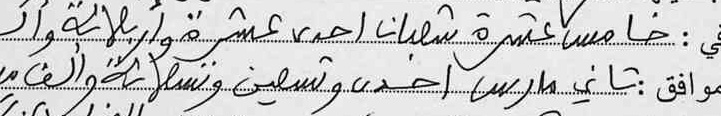 في : خامس عشرة شعبان احدى عشرة وأربعمائة وألف
موافق : ثاني مارس احدى وتسعين وتسعمائة وألف م